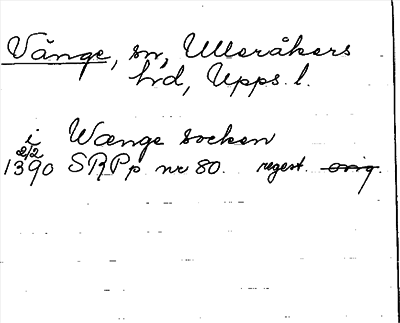 Vänge, sn, Ulleråkers
hd, Upps. l.
i Wænge socken
2/2
1390 SRPp nr 80. regest. orig.